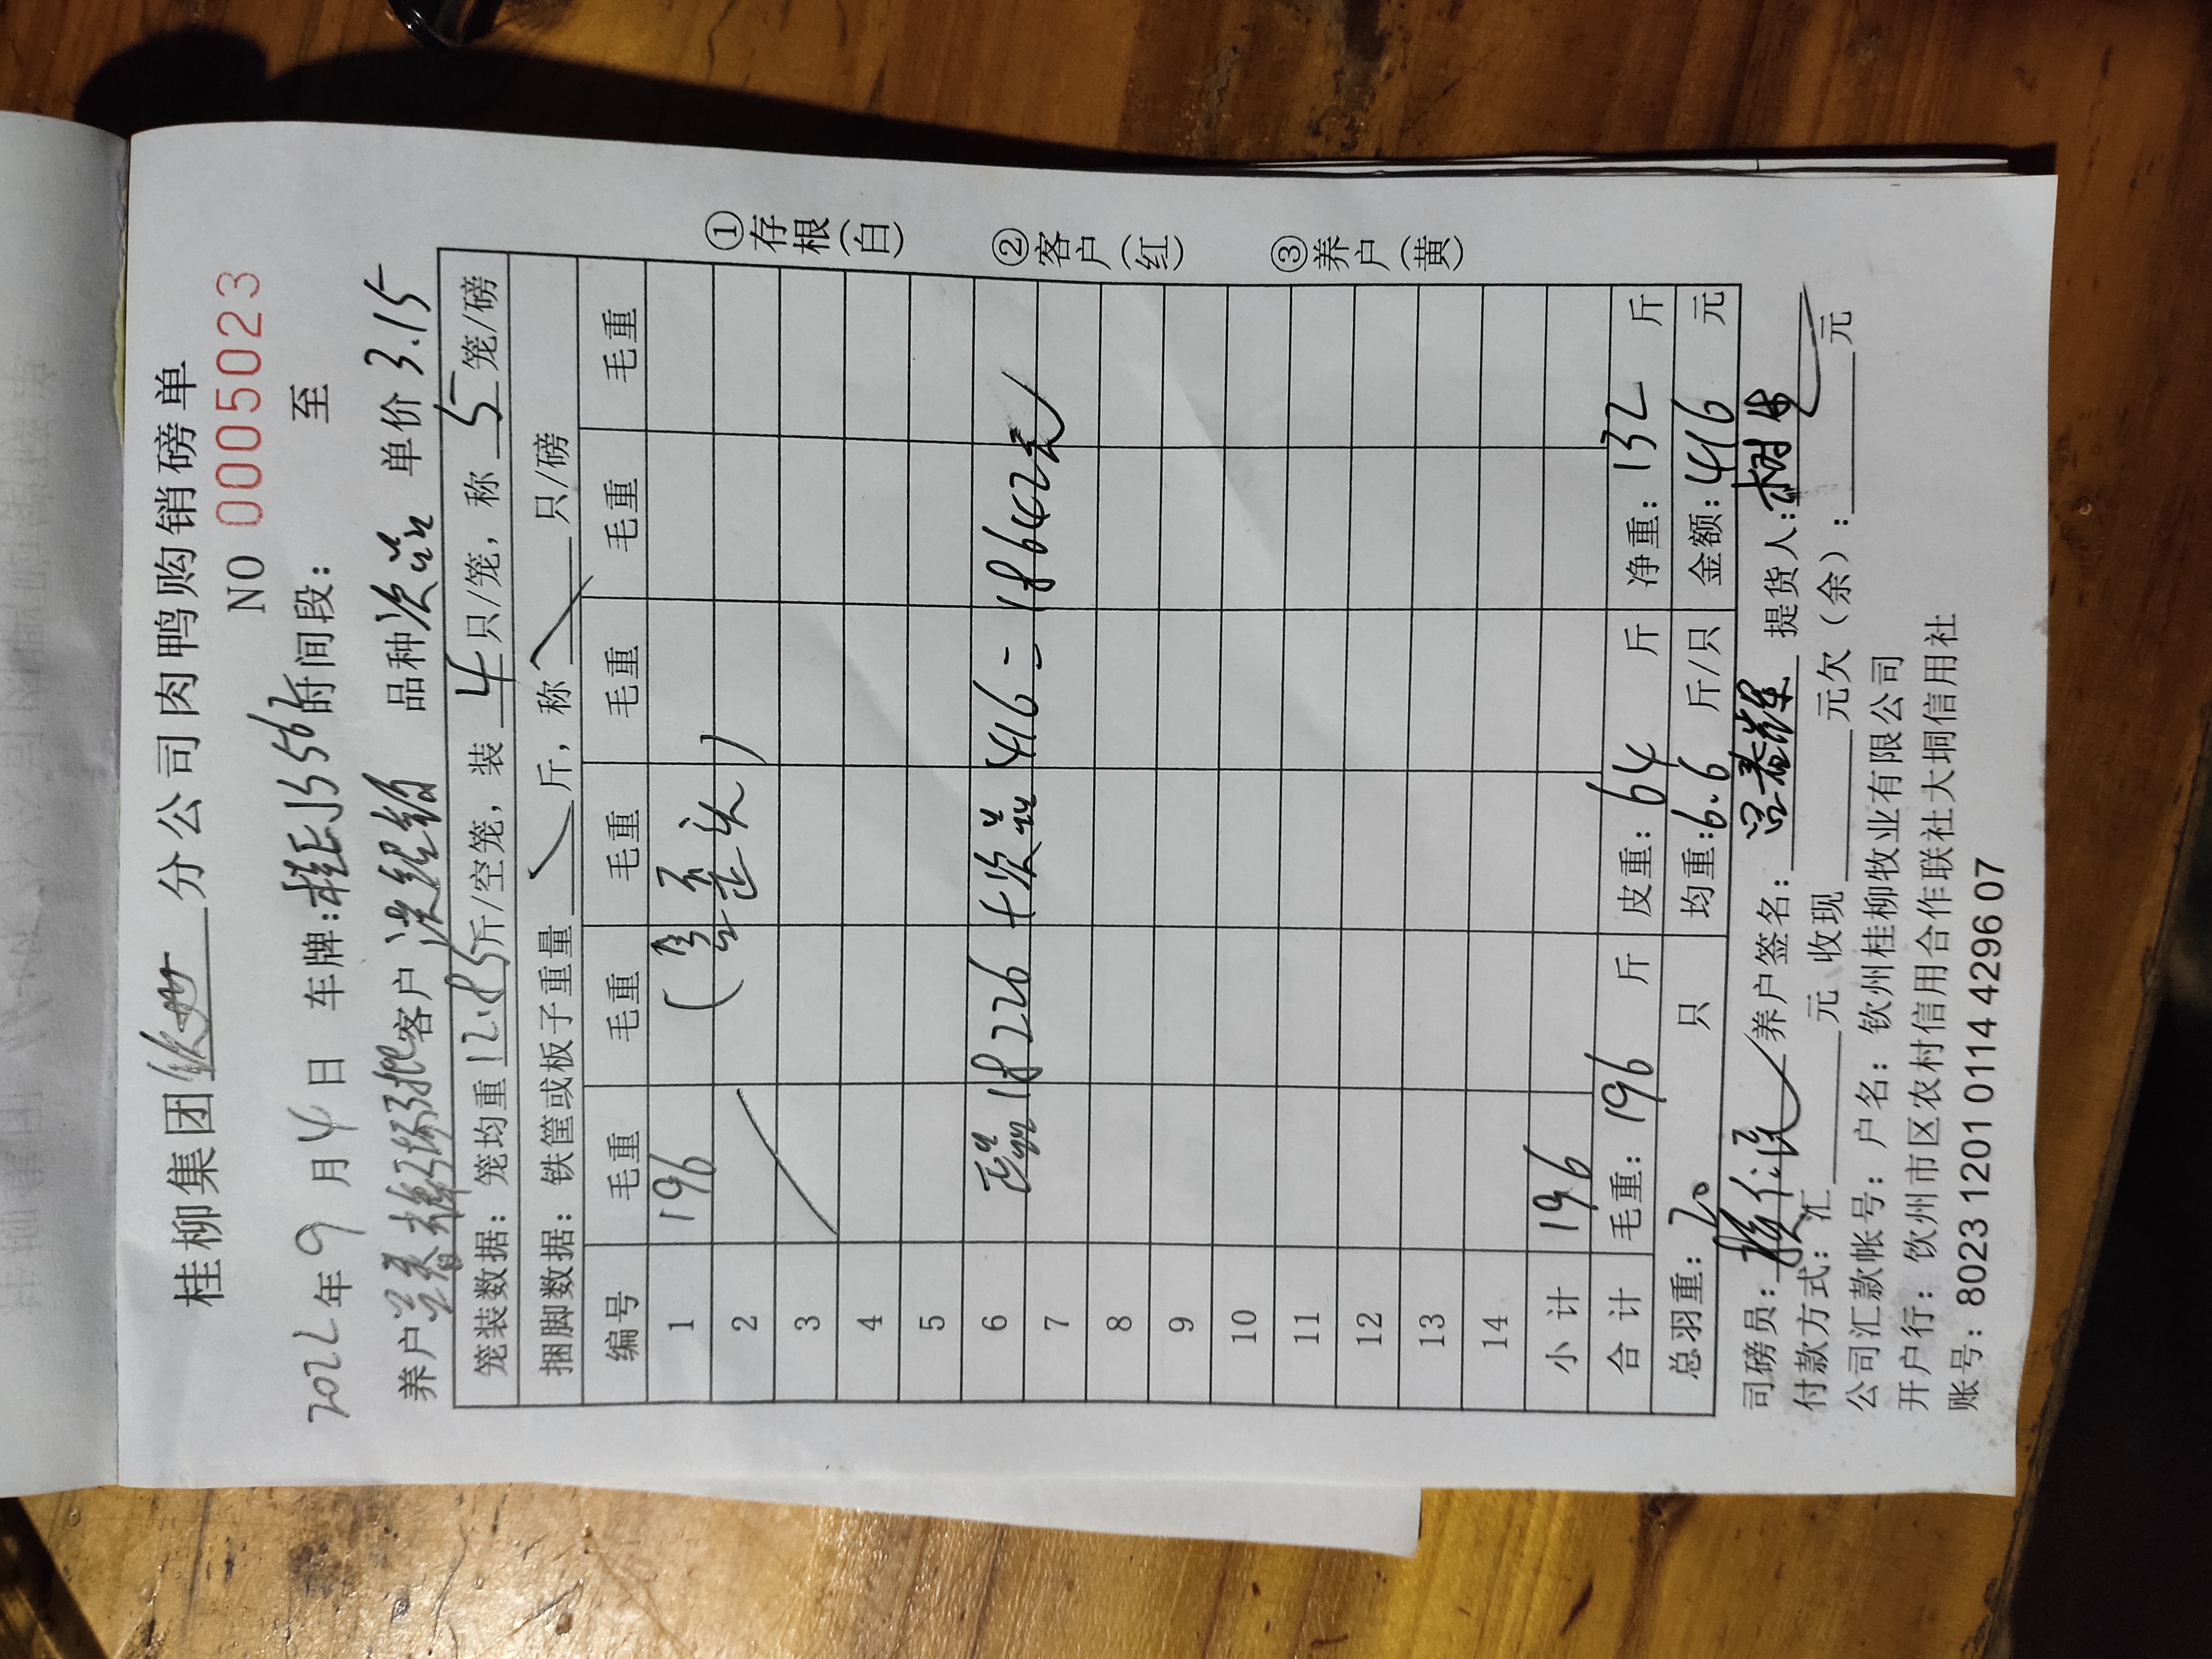 桂柳集团钦州分公司肉鸭购销磅单
NO 0005023
2022年9月4日 车牌: 时间段: 至
养户 客户 品种次品 单价3.15
笼装数据：笼均重12.85斤/空笼，装4只/笼，称5笼/磅
捆脚数据：铁筐或板子重量 斤，称 只/磅
编号 毛重 毛重 毛重 毛重 毛重 毛重
1 196 (
2 歪头)
3
4
5
6 正品18226+次品416=18642元
7
8
9
10
11
12
13
14
小计 196
合计 毛重：196斤 皮重：64斤 净重：132斤
总羽重：20只 均重：6.6斤/只 金额：416元
司磅员： 养户签名： 提货人：
付款方式：汇 元 收现 元欠（余）： 元
公司汇款帐号：户名：钦州桂柳牧业有限公司
开户行：钦州市区农村信用合作联社大垌信用社
账号：8023 1201 0114 4296 07
①存根(白)
②客户(红)
③养户(黄)